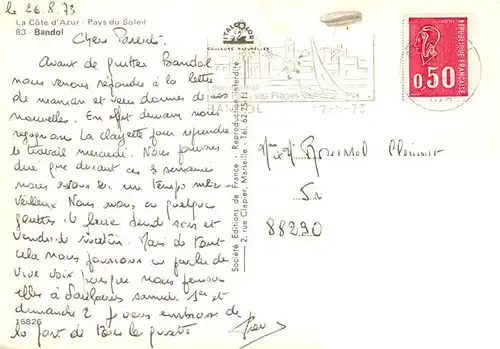 le 26.8.73
La Côte d'Azur - Pays du Soleil
83 - Bandol
Chers Parents.
Avant de quitter Bandol
nous venons répondre à la lettre
de maman et vous donner de nos
nouvelles. En effet demain nous
regagnons La Clayette pour reprendre
le travail mercredi. Nous pouvons
dire que durant ces 3 semaines
nous avons eu un temps mer-
veilleux Nous avons eu quelques
gouttes de pluie jeudi soir et
vendredi matin. Mais de tout
cela nous pourrons en parler de
vive voix puisque nous
à samedi 1er et
dimanche 2. Je vous embrasse de
la part de tous les quatre
15826
Société Editions de France - Reproduction interdite
2, rue Clapier, Marseille - Tél. 62-75-11
ITALCOLOR
COULEURS NATURELLES
ses Plages
BANDOL
27-8-73
REPUBLIQUE FRANÇAISE
0,50
88290